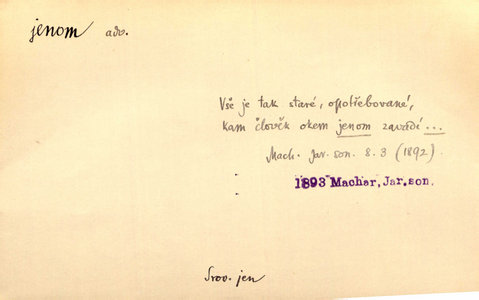 jenom adv.
Vše je tak staré, opotřebované,
kam člověk okem jenom zavadí ...
Mach. Jar. son. 8.3 (1892).
1893 Machar, Jar.son.
Srov. jen